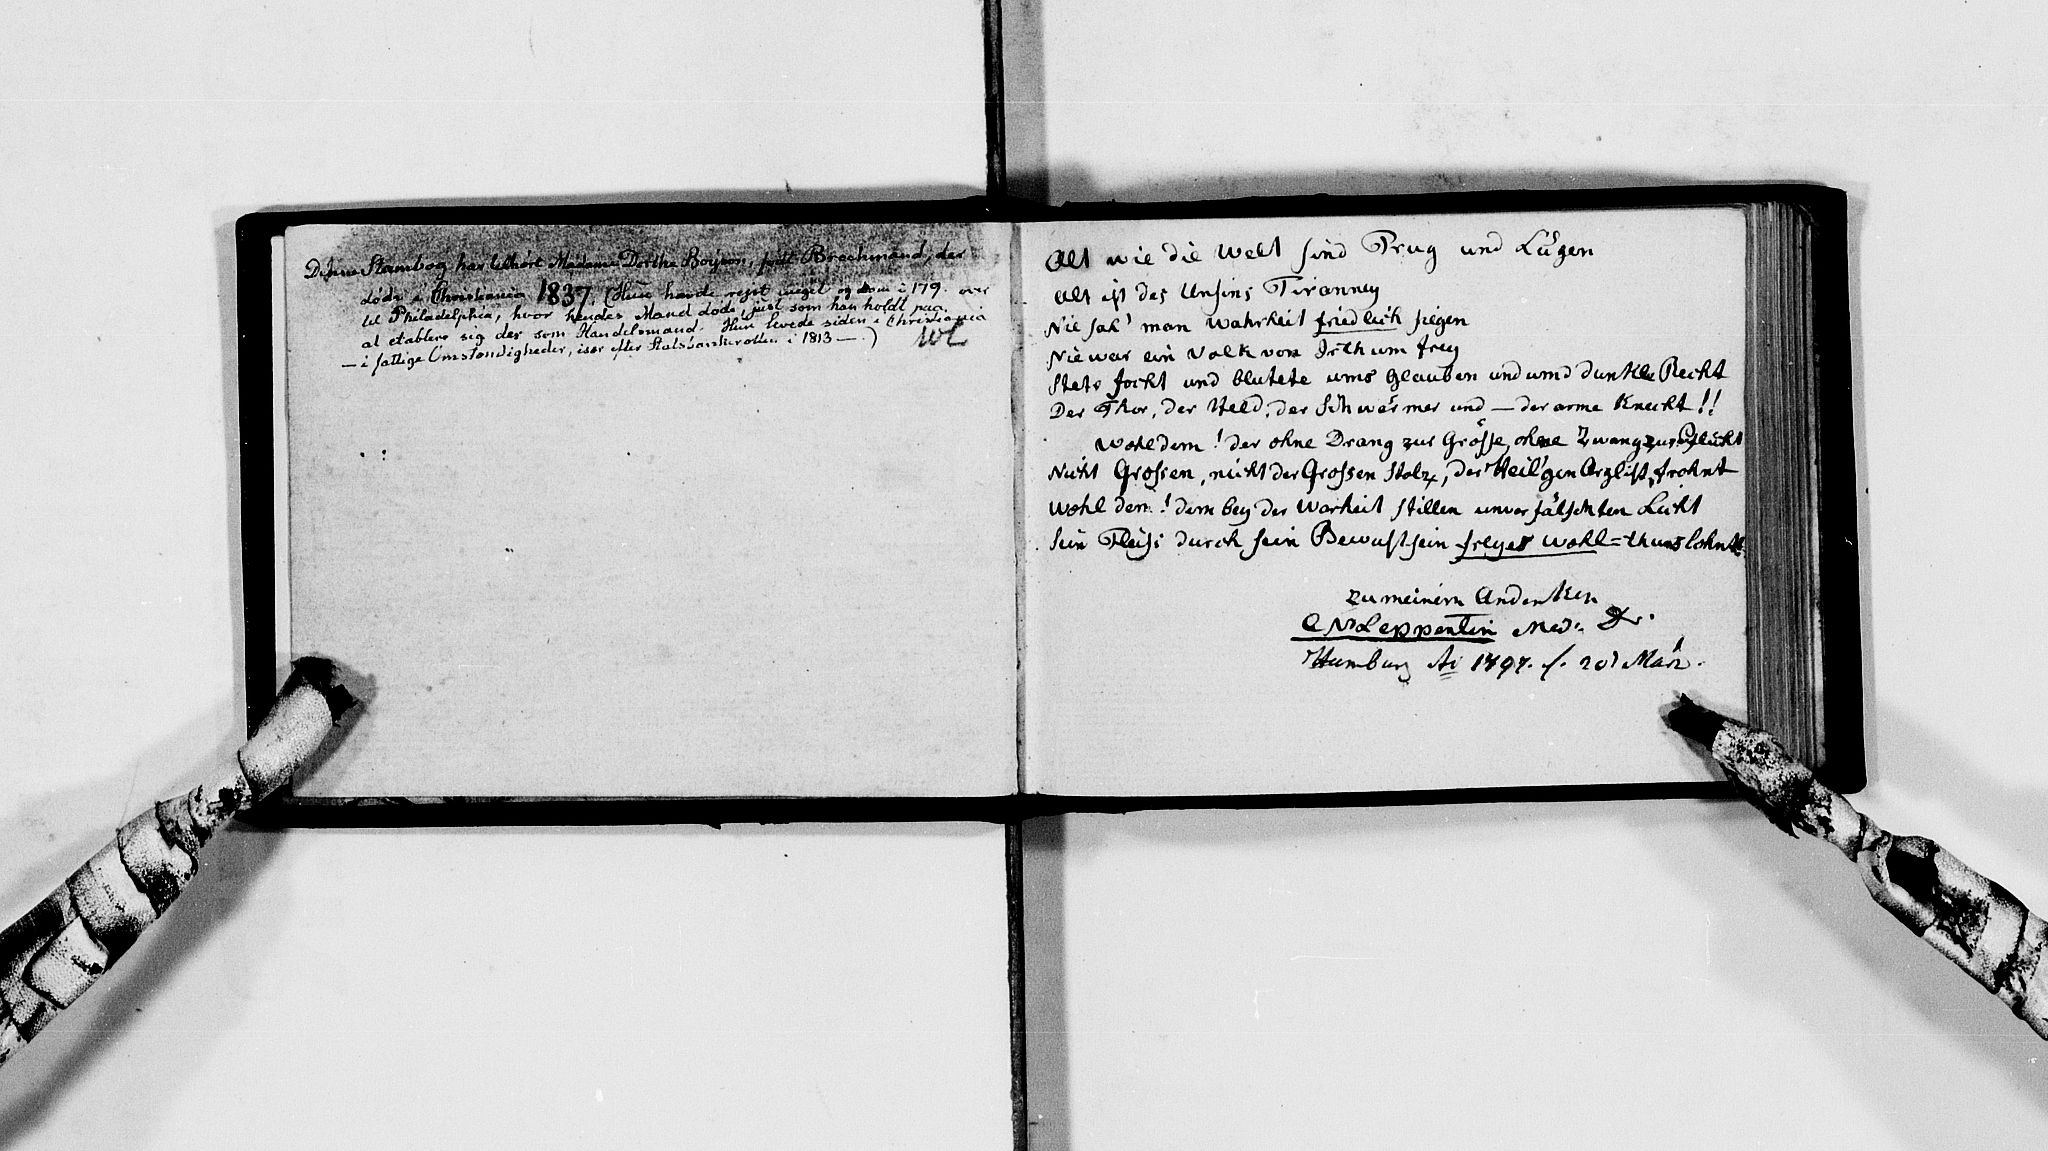 Denne Stambog har tilhört Madame Dorthe Boyson, född Brechmand, der
döde i Christiania 1837. (Hun havde rejst meget og kom i 179. over
til Philadelphia, hvor hendes Mand döde, just som han holdt paa
at etablere sig der som Handelsmand. Hun levede siden i Christiania
— i fattige Omstændigheder, især efter Statsbankerotten i 1813 —.)
Alt wie die Welt sind Trug und Lügen
Alt ist des Unsins Tiranney
Nie sah' man Wahrheit friedlich siegen
Nie war ein Volk von Irthum frey
Stets focht und blutete ums Glauben und ums dunkle Recht
Der Thor, der Held, der Schwärmer und — der arme Knecht!!
Wohl dem! der ohne Drang zur Grösse, ohne Zwang zur Pflicht
Nicht Grossen, nicht der Grossen Stolz, der Heil'gen Arglist, frohnt
Wohl dem! dem bey der Warheit stillen unverfälschten Licht
Sein Fleiss durch sein Bewustsein freyes Wohl=thuns lohnt
zu meinem Andenken
Leppentin Med. Dr.
Hamburg Ao 1797. f. 20t März.